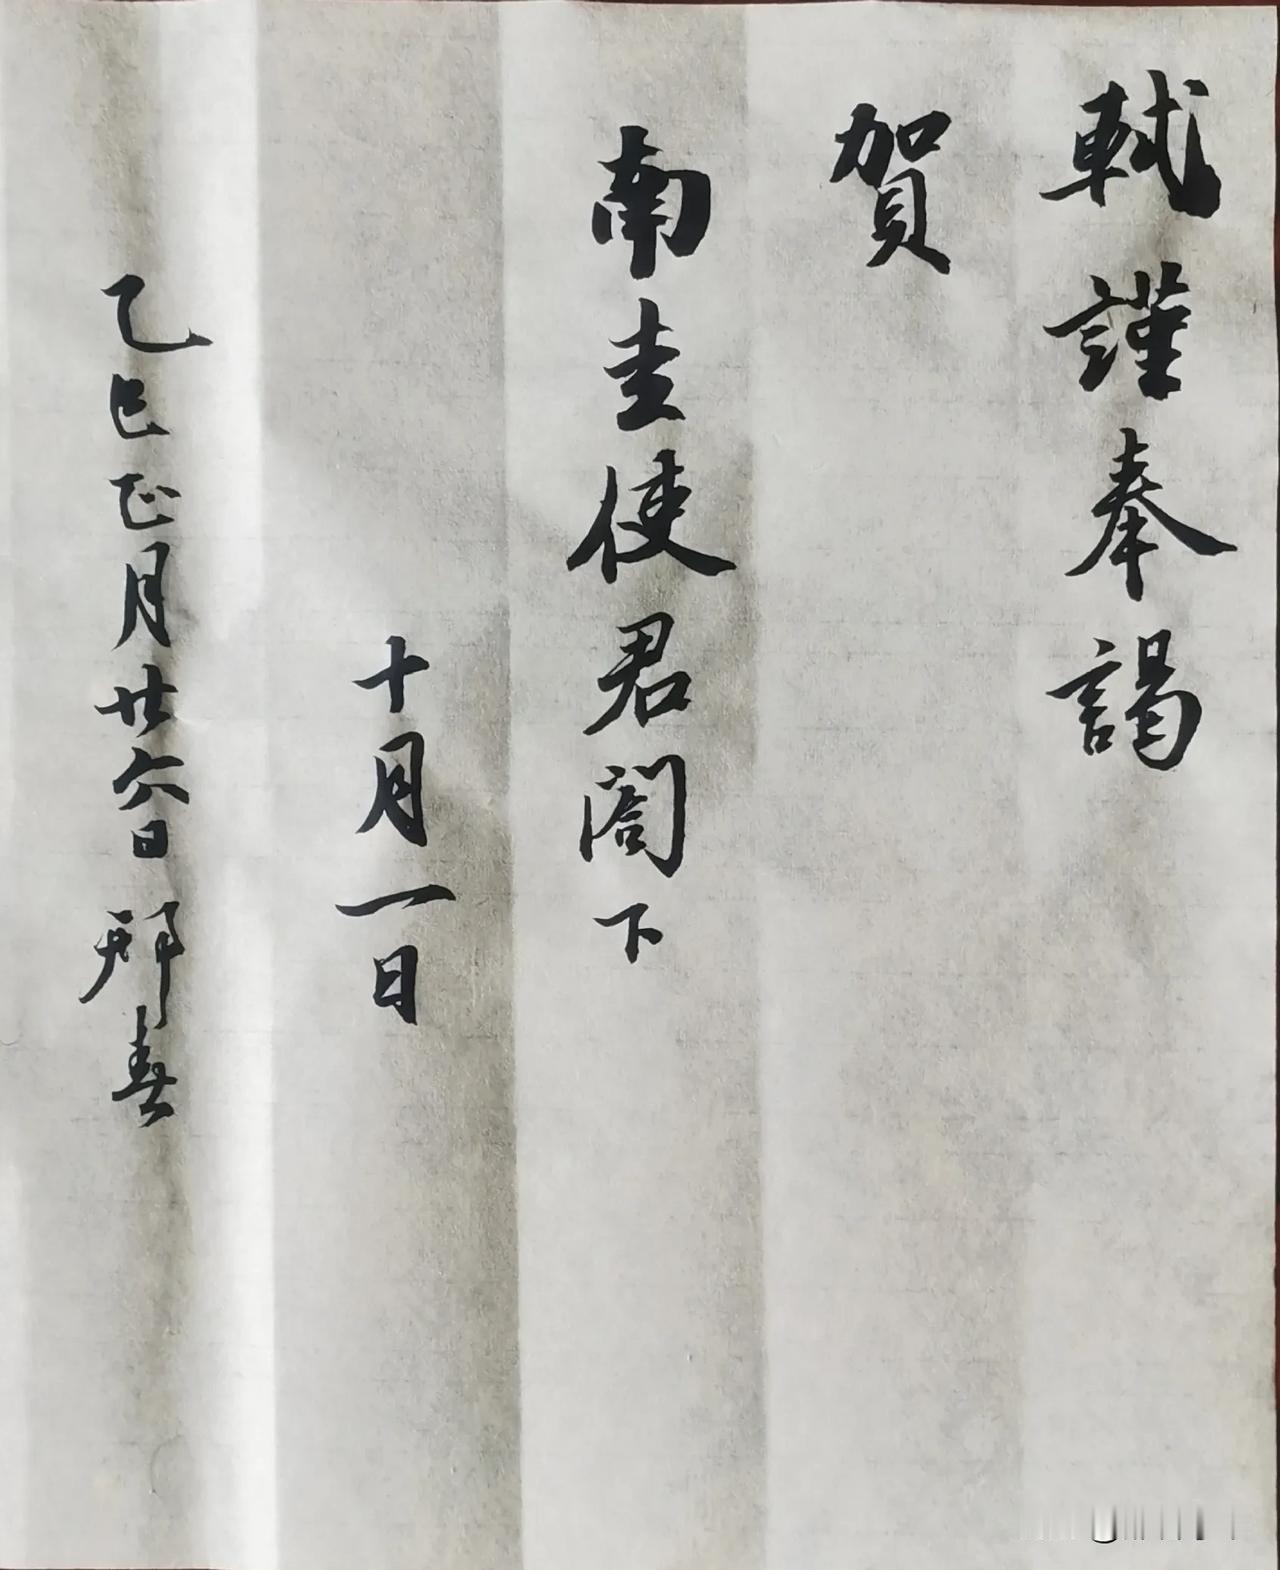 軾謹奉謁
賀
南圭使君閤下
十月一日
乙巳正月廿六日邢春